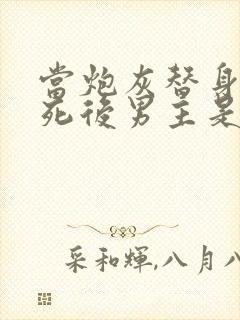 當炮灰替身
死後男主是
采和輝,八月八